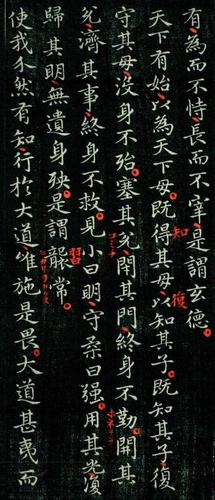 有為而不恃長而不宰是謂玄德
天下有始以為天下母既得其母以知其子既知其子復
知
復
守其母沒身不殆塞其兌閉其門終身不勤開其
兌濟其事終身不救見小曰明守柔曰强用其光復
習
歸其明無遺身殃是謂襲常
使我介然有知行於大道唯施是畏大道甚夷而